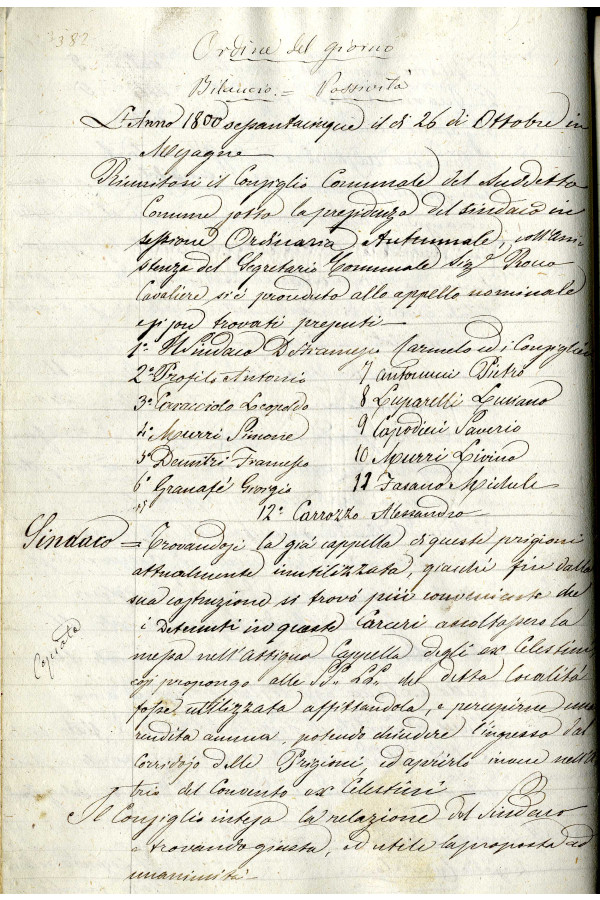 382
Ordine del giorno
Bilancio = Passività
L'Anno 1800 sessantacinque il dì 26 di Ottobre in
Mesagne
Riunitosi il Consiglio Comunale del Suddetto
Comune sotto la presidenza del Sindaco in
sessione Ordinaria Autunnale, coll'assi-
stenza del Segretario Comunale Sigr Rocco
Cavaliere si è proceduto allo appello nominale
e si son trovati presenti
1º Il Sindaco D. Carmelo ed i Consiglieri
2º Profilo Antonio 7 Antonucci Pietro
3º Caracciolo Leopoldo 8 Luparelli Luciano
4º Murri Simone 9 Capodieci Saverio
5º Demitri Francesco 10 Murri Livino
6º Granafé Giorgio 11 Fasano Michele
12º Carrozzo Alessandro
Sindaco = Trovandosi la già cappella di queste prigioni
attualmente inutilizzata, giacché fin dalla
sua costruzione si trovò più conveniente che
i Detenuti in queste Carceri ascoltassero la
messa nell'attigua Cappella degli ex Celestini,
così propongo alle SS. LL. che detta località
fosse utilizzata affittandola, e percepirne una
rendita annua, potendo chiudere l'ingresso dal
Corridojo delle Prigioni, ed aprirlo invece nell'a-
trio del Convento ex Celestini
Copiata
Il Consiglio intesa la relazione del Sindaco
e trovando giusta, ed utile la proposta ad
unanimità